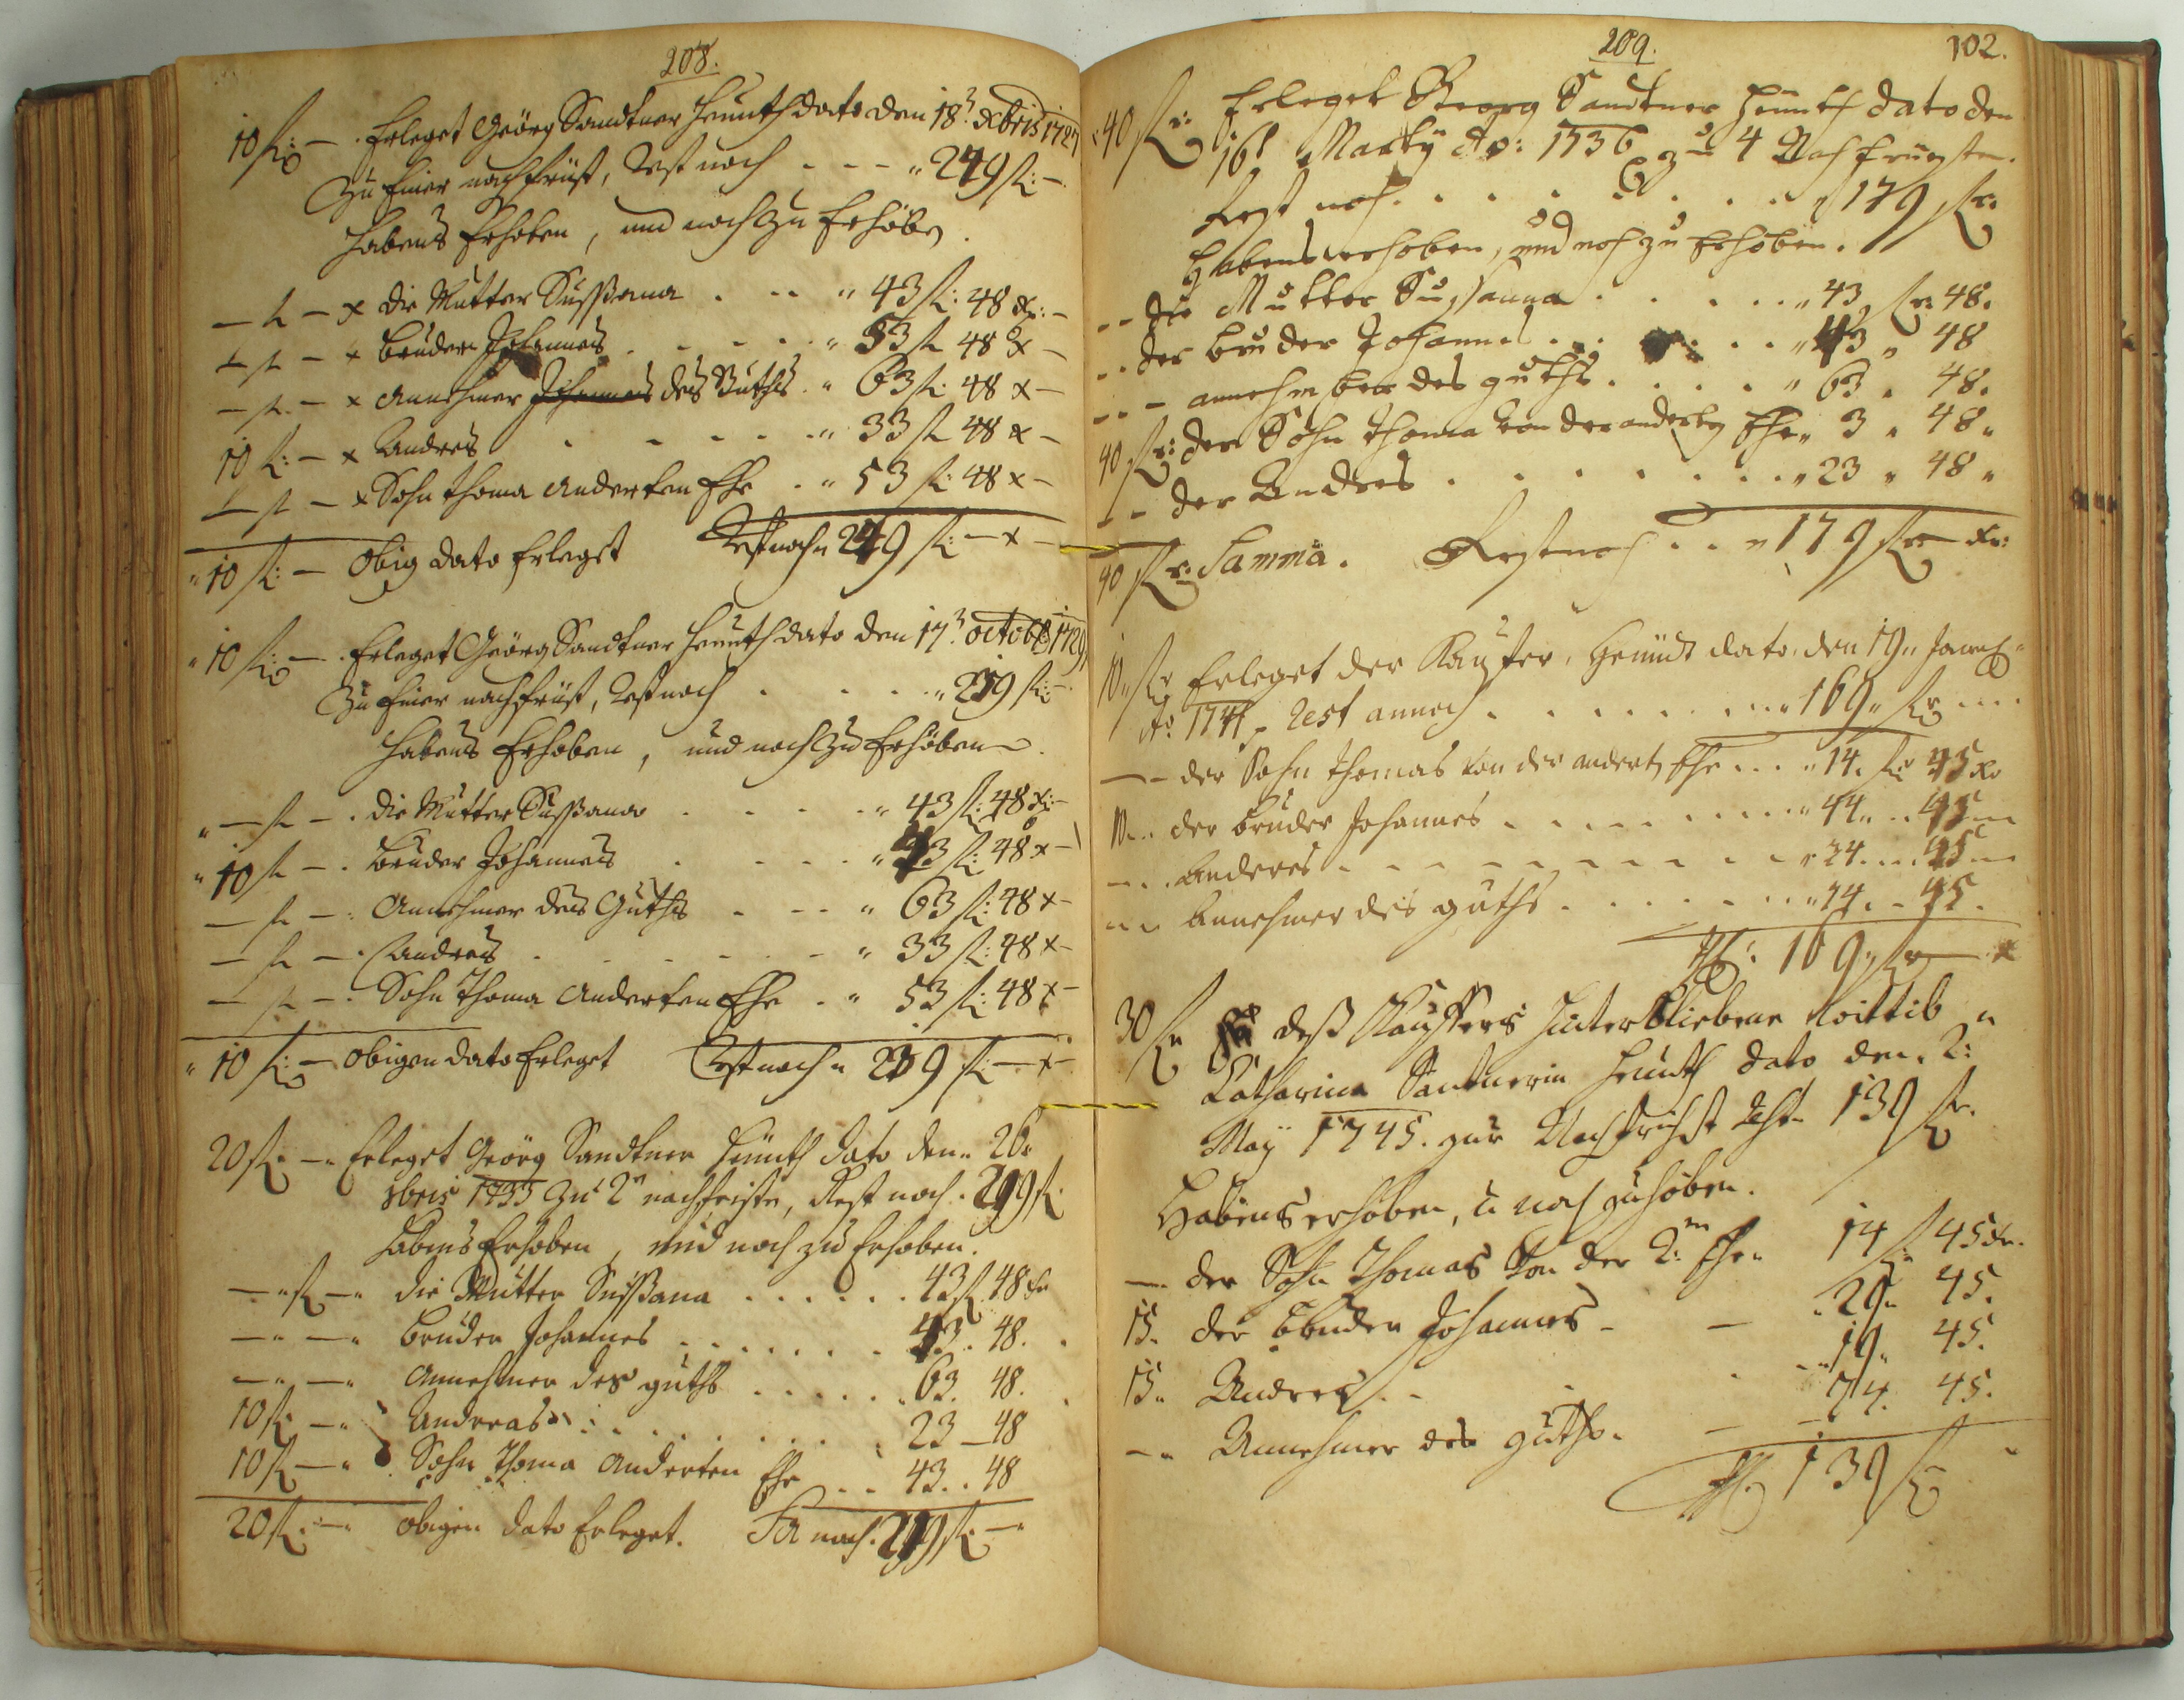 208.
10 fl: — . Erleget Geörg Sandtner heunth dato den 18t Xbris 1727
Zu Einer nachfrist, Rest noch . - - - " 249 fl: —
habens Erhoben, und noch Zu Erhöben.
— fl — x die Mutter Sussana . .. " 43 fl: 48 x: —
— fl — x Bruder Johannes . . . . . " 53 fl 48 x —
— fl — x Annehmer Johannes des Guths . " 63 fl: 48 x —
10 fl: — x Andres . . . . . " 33 fl 48 x —
— fl — x Sohn Thoma Anderten Ehe . " 53 fl: 48 x —
" 10 fl: — Obig dato Erleget Rest noch " 249 fl: — x —
" 10 fl: — . Erleget Geörg Sandtner heunth dato den 17t octob: 1729
Zu Einer nachfrist, Rest noch . . . . " 239 fl: —
habens Erhoben, und noch Zu Erhöben.
" — fl — . die Mutter Sussana . . . . " 43 fl: 48 x: —
" 10 fl — . Bruder Johannes . . . . " 43 fl: 48 x —
— fl — : Annehmer des Guths . - - " 63 fl: 48 x —
— fl — . Andres . . . . . " 33 fl: 48 x —
— fl — . Sohn Thoma Anderten Ehe . " 53 fl: 48 x —
" 10 fl: — obigen dato Erleget Rest noch " 239 fl: — x —
20 fl: — " Erleget Geörg Sandtner heunth dato den " 26.
8bris 1733 Zu 2 nachfriste, Rest noch . 219 fl:
habens Erhoben, und noch zu Erhoben.
— " fl — " die Mutter Sussana . . . . . . 43 fl 48 x
— " — " Bruder Johannes . . . . . . 43 . 48 .
— " — " Annehmer des guths . . . . . 63 . 48 .
10 fl: — " Andreas . . . . . . 23 — 48
10 fl — " Sohn Thoma Anderten Ehe . . 43 . . 48
20 fl: — " obigen dato Erleget. noch . 219 fl: — "
209.
102.
40 fl: Erleget Georg Sandtner heunth dato den
16t Marty Ao: 1736 zu 4 Nachfrüsten.
Rest noch . . . . . . . . " 179 fl:
Habens erhoben, und noch zu erhöben.
- - die Mutter Sussanna . . . . . " 43 fl: 48.
. . der bruder Johannes . . . . . " 43 " 48
- - annehmber des guths . . . . " 63 " 48.
40 fl: der Sohn Thoma von der anderten Ehe " 3 " 48 "
- - der Andres . . . . . . . " 23 " 48 "
40 fl: Summa. Rest noch . . " 179 fl: — xr:
10 " fl Erleget der Kaufer, heundt dato den 19 "
Ao: 1741 Rest annoch . . . . . . . " 169 " fl . . .
— - der Sohn Thomas von der andert Ehe . . . " 14 . fl 45 xr
10 - . . der bruder Johannes . . . . . . " 44 . . . 45 —
— . . Anderes . . . . . . . . " 34 . . . 45 —
. . . Annehmer des guths . . . . . . " 74 . - 45 .
169 " fl — x
30 fl deß Kauffers hinterbliebene Wittib "
Catharina Santnerin heunth dato den 2:
May 1745. zur Nachfrist Rest 139 fl:
Habens erhoben, u noch zuhöben.
— der Sohn Thomas von der 2:ten Ehe " 14 fl 45 xr.
15 . der bruder Johannes - — " 29 " 45.
15 " Andres . - . . " 19 " 45.
— " Annehmer des guths . — — 74 . 45.
139 fl